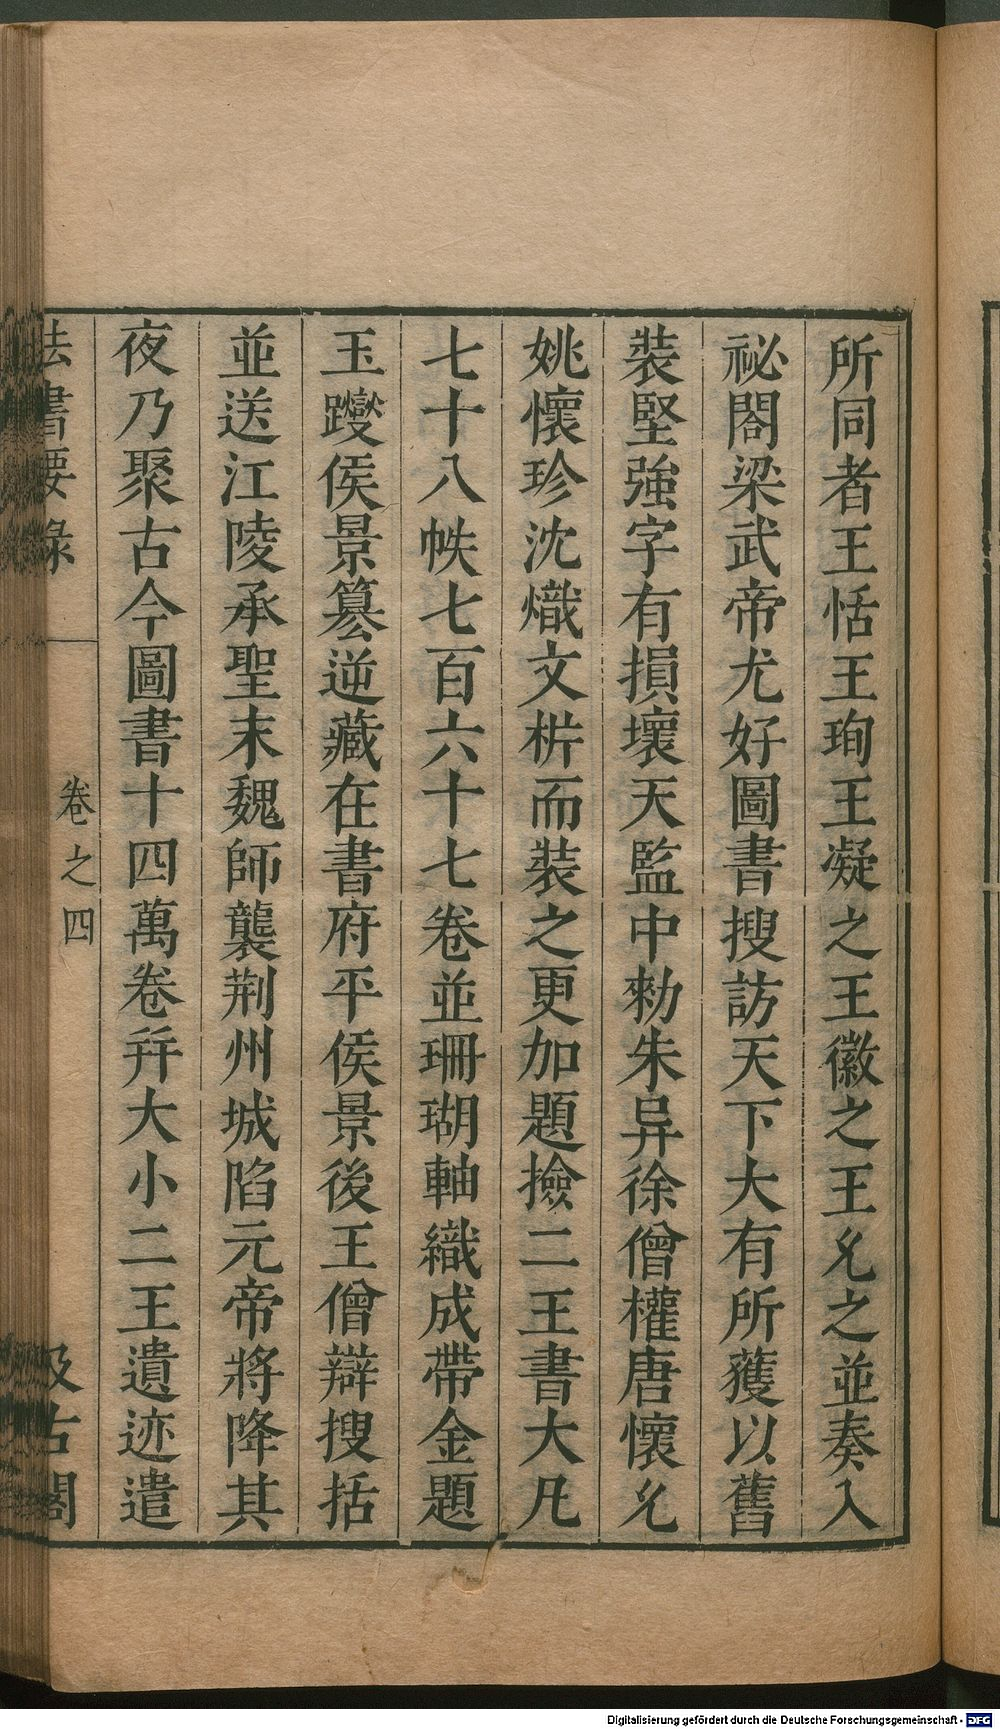 所同者王恬王珣王凝之王徽之王允之並奏入
祕閣梁武帝尤好圖書搜訪天下大有所獲以舊
裝堅強字有損壞天監中勑朱异徐僧權唐懷允
姚懷珍沈熾文析而裝之更加題撿二王書大凡
七十八帙七百六十七卷並珊瑚軸織成帶金題
玉躞侯景篡逆藏在書府平侯景後王僧辯搜括
並送江陵承聖末魏師襲荆州城陷元帝將降其
夜乃聚古今圖書十四萬卷幷大小二王遺迹遣
法書要錄
卷之四
汲古閣
Digitalisierung gefördert durch die Deutsche Forschungsgemeinschaft - DFG